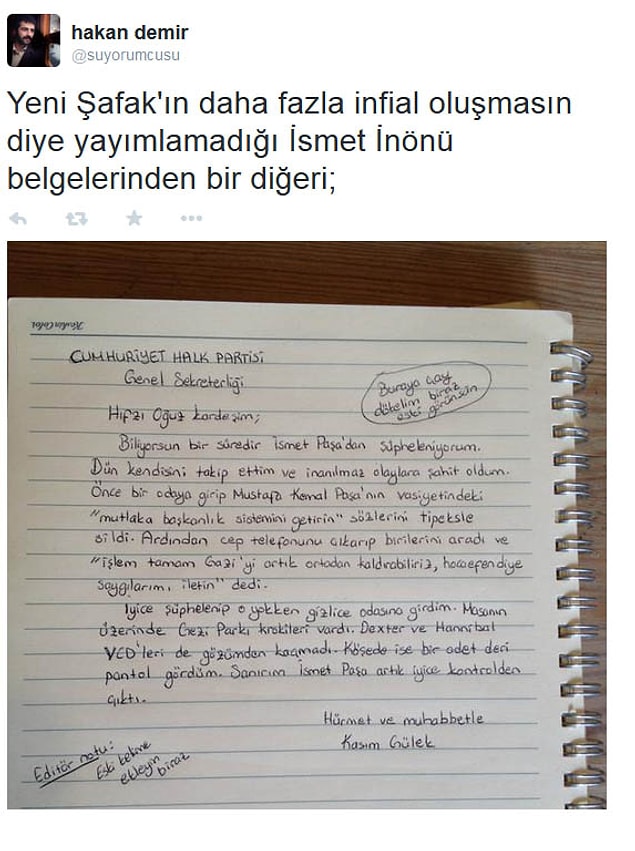 hakan demir
@suyorumcusu
Yeni Şafak'ın daha fazla infial oluşmasın
diye yayımlamadığı İsmet İnönü
belgelerinden bir diğeri;
CUMHURİYET HALK PARTİSİ
Genel Sekreterliği
Buraya çay
dökelim biraz
eski görünsün
Hıfzı Oğuz kardeşim;
Biliyorsun bir süredir İsmet Paşa'dan şüpheleniyorum.
Dün kendisini takip ettim ve inanılmaz olaylara şahit oldum.
Önce bir odaya girip Mustafa Kemal Paşa'nın vasiyetindeki
"mutlaka başkanlık sistemini getirin" sözlerini tipeksle
sildi. Ardından cep telefonunu çıkarıp birilerini aradı ve
"işlem tamam Gazi'yi artık ortadan kaldırabiliriz, hocaefendiye
saygılarımı iletin" dedi.
İyice şüphelenip o yokken gizlice odasına girdim. Masanın
üzerinde Gezi Parkı krokileri vardı. Dexter ve Hannibal
VCD'leri de gözümden kaçmadı. Köşede ise bir adet deri
pantol gördüm. Sanırım İsmet Paşa artık iyice kontrolden
çıktı.
Hürmet ve muhabbetle
Kasım Gülek
Editör notu:
Eski kelime
ekleyin biraz